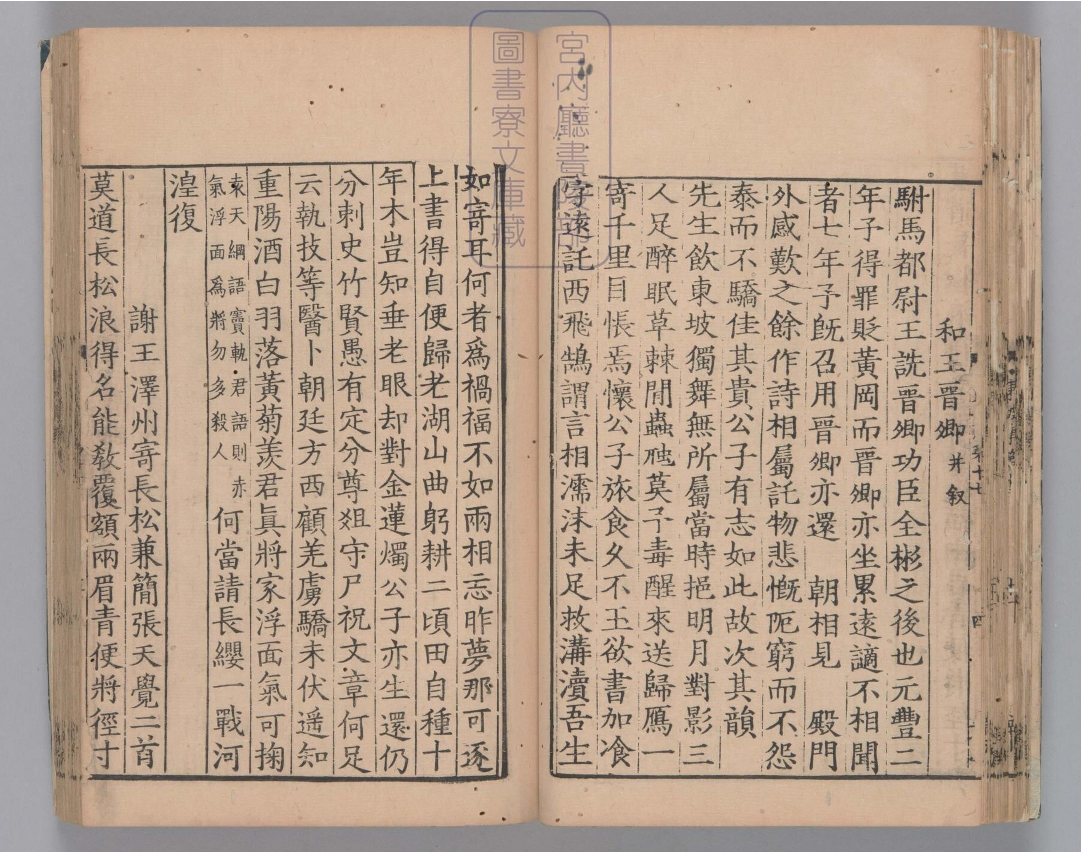 和王晉卿并叙
駙馬都尉王詵晉卿功臣全彬之後也元豐二
年子得罪貶黃岡而晉卿亦坐累遠謫不相聞
者七年子旣召用晉卿亦還 朝相見 殿門
外感歎之餘作詩相屬託物悲慨阨窮而不怨
泰而不驕佳其貴公子有志如此故次其韻
先生飲東坡獨舞無所屬當時挹明月對影三
人足醉眠草棘閒蟲虺莫予毒醒來送歸鴈一
寄千里目悵焉懷公子旅食久不玉欲書加飡
字遠託西飛鵠謂言相濡沫未足救溝瀆吾生
如寄耳何者爲禍福不如兩相忘昨夢那可逐
上書得自便歸老湖山曲躬耕二頃田自種十
年木豈知垂老眼却對金蓮燭公子亦生還仍
分刺史竹賢愚有定分尊俎守尸祝文章何足
云執技等醫卜朝廷方西顧羌虜驕未伏遥知
重陽酒白羽落黃菊羨君眞將家浮面氣可掬
袁天綱語竇軌君語則赤
氣浮面爲將勿多殺人
何當請長纓一戰河
湟復
謝王澤州寄長松兼簡張天覺二首
莫道長松浪得名能敎覆額兩眉青便將徑寸
宮内廳書陵部
圖書寮文庫藏